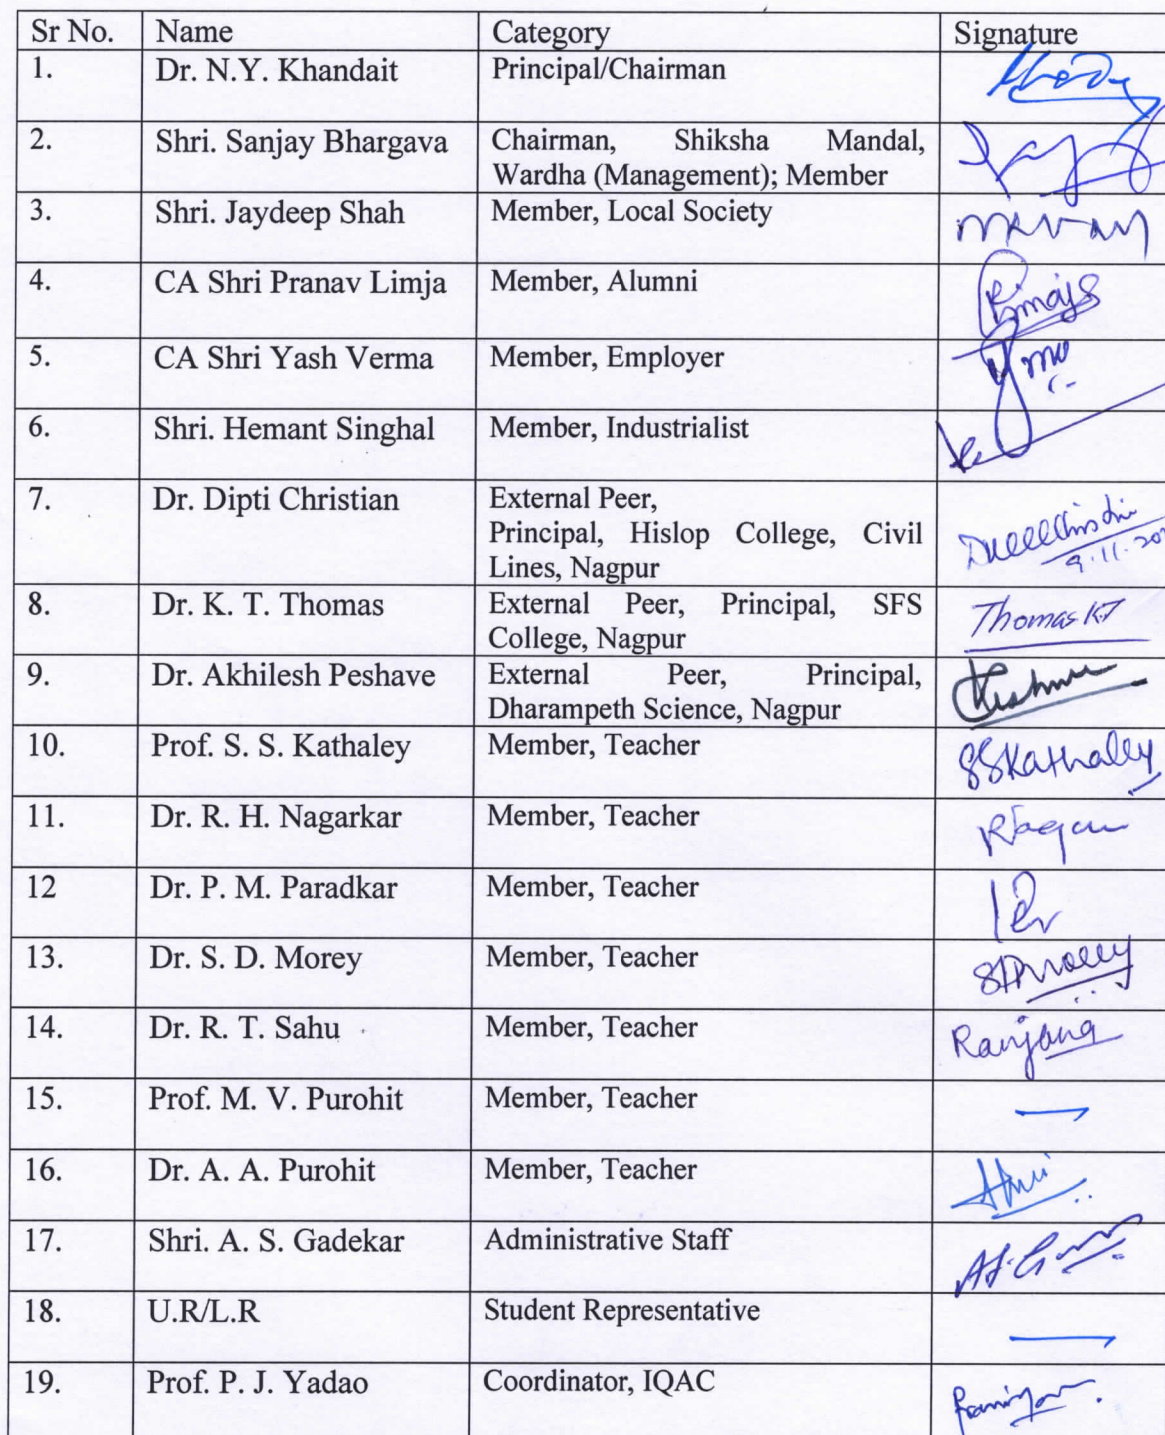 Sr No. Name Category Signature
1. Dr. N.Y. Khandait Principal/Chairman
2. Shri. Sanjay Bhargava Chairman, Shiksha Mandal,
Wardha (Management); Member
3. Shri. Jaydeep Shah Member, Local Society
4. CA Shri Pranav Limja Member, Alumni
5. CA Shri Yash Verma Member, Employer
6. Shri. Hemant Singhal Member, Industrialist
7. Dr. Dipti Christian External Peer,
Principal, Hislop College, Civil
Lines, Nagpur
8. Dr. K. T. Thomas External Peer, Principal, SFS
College, Nagpur Thomas KT
9. Dr. Akhilesh Peshave External Peer, Principal,
Dharampeth Science, Nagpur
10. Prof. S. S. Kathaley Member, Teacher SSKathaley
11. Dr. R. H. Nagarkar Member, Teacher
12 Dr. P. M. Paradkar Member, Teacher
13. Dr. S. D. Morey Member, Teacher
14. Dr. R. T. Sahu Member, Teacher Ranjana
15. Prof. M. V. Purohit Member, Teacher
16. Dr. A. A. Purohit Member, Teacher
17. Shri. A. S. Gadekar Administrative Staff
18. U.R/L.R Student Representative
19. Prof. P. J. Yadao Coordinator, IQAC